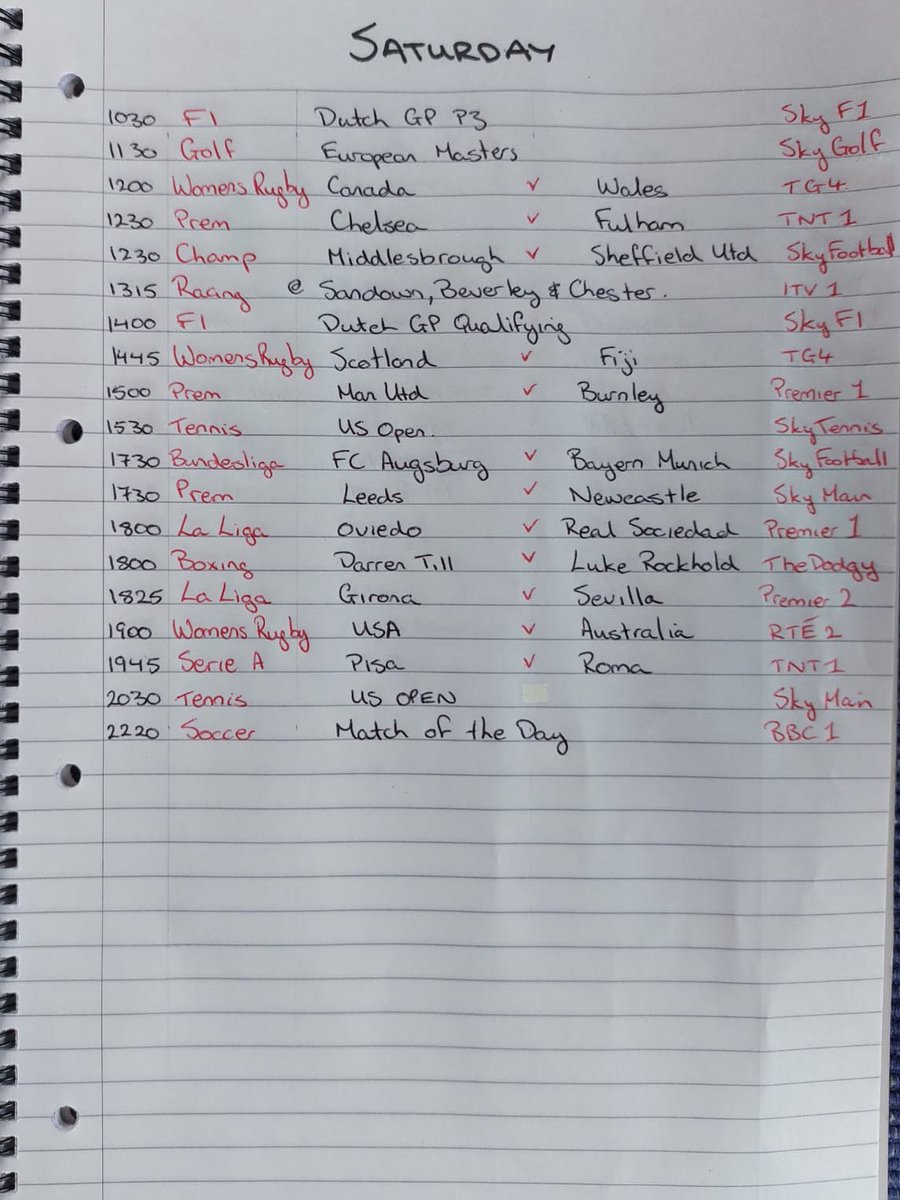 SATURDAY
1030 F1 Dutch GP P3 Sky F1
1130 Golf European Masters Sky Golf
1200 Womens Rugby Canada v Wales TG4
1230 Prem Chelsea v Fulham TNT 1
1230 Champ Middlesbrough v Sheffield Utd Sky Football
1315 Racing @ Sandown, Beverley & Chester. ITV 1
1400 F1 Dutch GP Qualifying Sky F1
1445 Womens Rugby Scotland v Fiji TG4
1500 Prem Man Utd v Burnley Premier 1
1530 Tennis US Open. Sky Tennis
1730 Bundesliga FC Augsburg v Bayern Munich Sky Football
1730 Prem Leeds v Newcastle Sky Main
1800 La Liga Oviedo v Real Sociedad Premier 1
1800 Boxing Darren Till v Luke Rockhold The Dodgy
1825 La Liga Girona v Sevilla Premier 2
1900 Womens Rugby USA v Australia RTÉ 2
1945 Serie A Pisa v Roma TNT 1
2030 Tennis US OPEN Sky Main
2220 Soccer Match of the Day BBC 1